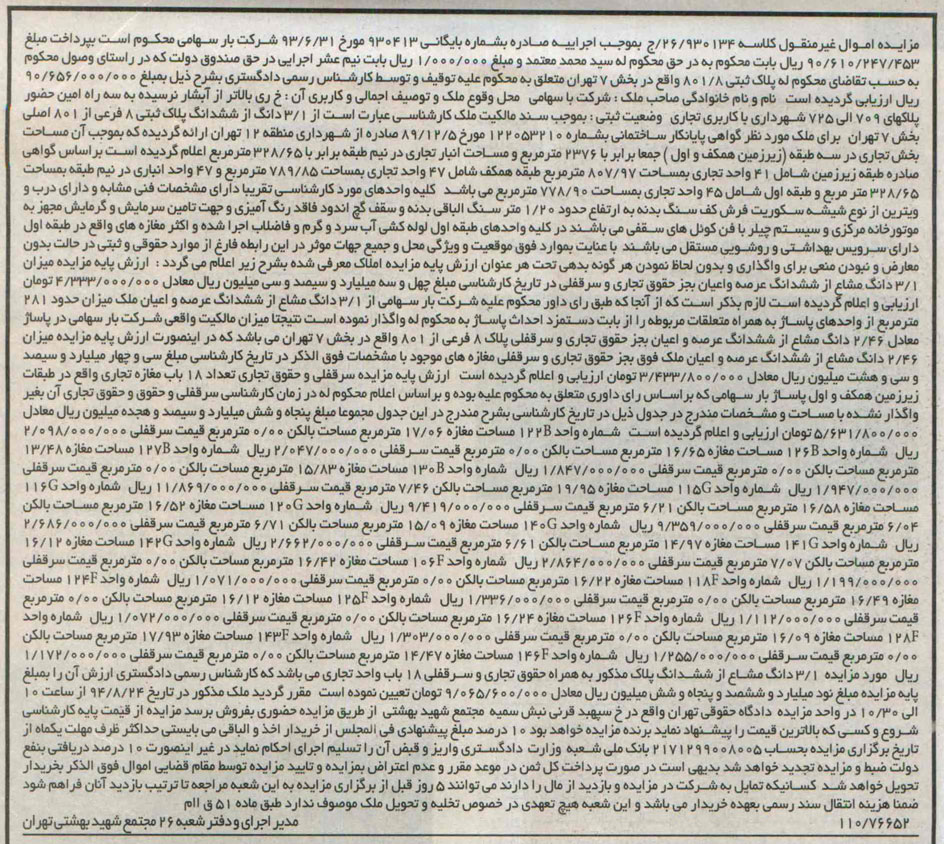 مزایده اموال غیرمنقول کلاسه ۲۶/۹۳۰۱۳۴/ج بموجب اجراییه صادره بشماره بایگانی ۹۳۰۴۱۳ مورخ ۹۳/۶/۳۱ شرکت بار سهامی محکوم است بپرداخت مبلغ
۹۰/۶۱۰/۲۴۷/۴۵۳ ریال بابت محکوم به در حق محکوم له سید محمد معتمد و مبلغ ۱/۰۰۰/۰۰۰ ریال بابت نیم عشر اجرایی در حق صندوق دولت که در راستای وصول محکوم
به حسب تقاضای محکوم له پلاک ثبتی ۸۰۱/۸ واقع در بخش ۷ تهران متعلق به محکوم علیه توقیف و توسط کارشناس رسمی دادگستری بشرح ذیل بمبلغ ۹۰/۶۵۶/۰۰۰/۰۰۰
ریال ارزیابی گردیده است نام و نام خانوادگی صاحب ملک : شرکت با سهامی محل وقوع ملک و توصیف اجمالی و کاربری آن : خ ری بالاتر از آبشار نرسیده به سه راه امین حضور
پلاکهای ۷۰۹ الی ۷۲۵ شهرداری با کاربری تجاری وضعیت ثبتی : بموجب سند مالکیت ملک کارشناسی عبارت است از ۳/۱ دانگ از ششدانگ پلاک ثبتی ۸ فرعی از ۸۰۱ اصلی
بخش ۷ تهران برای ملک مورد نظر گواهی پایانکار ساختمانی بشماره ۱۲۲۰۵۳۲۱۰ مورخ ۸۹/۱۲/۵ صادره از شهرداری منطقه ۱۲ تهران ارائه گردیده که بموجب آن مساحت
بخش تجاری در سه طبقه (زیرزمین همکف و اول ) جمعا برابر با ۲۳۷۶ مترمربع و مساحت انبار تجاری در نیم طبقه برابر با ۳۲۸/۶۵ مترمربع اعلام گردیده است براساس گواهی
صادره طبقه زیرزمین شامل ۴۱ واحد تجاری بمساحت ۸۰۷/۹۷ مترمربع طبقه همکف شامل ۴۷ واحد تجاری بمساحت ۷۸۹/۸۵ مترمربع و ۴۷ واحد انباری در نیم طبقه بمساحت
۳۲۸/۶۵ متر مربع و طبقه اول شامل ۴۵ واحد تجاری بمساحت ۷۷۸/۹۰ مترمربع می باشد کلیه واحدهای مورد کارشناسی تقریبا دارای مشخصات فنی مشابه و دارای درب و
ویترین از نوع شیشه سکوریت فرش کف سنگ بدنه به ارتفاع حدود ۱/۲۰ متر سنگ الباقی بدنه و سقف گچ اندود فاقد رنگ آمیزی و جهت تامین سرمایش و گرمایش مجهز به
موتورخانه مرکزی و سیستم چیلر با فن کوئل های سقفی می باشند در کلیه واحدهای طبقه اول لوله کشی آب سرد و گرم و فاضلاب اجرا شده و اکثر مغازه های واقع در طبقه اول
دارای سرویس بهداشتی و روشویی مستقل می باشند با عنایت بموارد فوق موقعیت و ویژگی محل و جمیع جهات موثر در این رابطه فارغ از موارد حقوقی و ثبتی در حالت بدون
معارض و نبودن منعی برای واگذاری و بدون لحاظ نمودن هر گونه بدهی تحت هر عنوان ارزش پایه مزایده املاک معرفی شده بشرح زیر اعلام می گردد : ارزش پایه مزایده میزان
۳/۱ دانگ مشاع از ششدانگ عرصه واعیان بجز حقوق تجاری و سرقفلی در تاریخ کارشناسی مبلغ چهل و سه میلیارد و سیصد و سی میلیون ریال معادل ۴/۳۳۳/۰۰۰/۰۰۰ تومان
ارزیابی و اعلام گردیده است لازم بذکر است که از آنجا که طبق رای داور محکوم علیه شرکت بار سهامی از ۳/۱ دانگ مشاع از ششدانگ عرصه و اعیان ملک میزان حدود ۲۸۱
مترمربع از واحدهای پاساژ به همراه متعلقات مربوطه را از بابت دستمزد احداث پاساژ به محکوم له واگذار نموده است نتیجتا میزان مالکیت واقعی شرکت بار سهامی در پاساژ
معادل ۲/۴۶ دانگ مشاع از ششدانگ عرصه و اعیان بجز حقوق تجاری و سرقفلی پلاک ۸ فرعی از ۸۰۱ واقع در بخش ۷ تهران می باشد که در اینصورت ارزش پایه مزایده میزان
۲/۴۶ دانگ مشاع از ششدانگ عرصه و اعیان ملک فوق بجز حقوق تجاری و سرقفلی مغازه های موجود با مشخصات فوق الذکر در تاریخ کارشناسی مبلغ سی و چهار میلیارد و سیصد
و سی و هشت میلیون ریال معادل ۳/۴۳۳/۸۰۰/۰۰۰ تومان ارزیابی و اعلام گردیده است ارزش پایه مزایده سرقفلی و حقوق تجاری تعداد ۱۸ باب مغازه تجاری واقع در طبقات
زیرزمین همکف و اول پاساژ بار سهامی که براساس رای داوری متعلق به محکوم علیه بوده و براساس اعلام محکوم له در زمان کارشناسی سرقفلی و حقوق و حقوق تجاری آن بغیر
واگذار نشده با مساحت و مشخصات مندرج در جدول ذیل در تاریخ کارشناسی بشرح مندرج در این جدول مجموعا مبلغ پنجاه و شش میلیارد و سیصد و هجده میلیون ریال معادل
۵/۶۳۱/۸۰۰/۰۰۰ تومان ارزیابی و اعلام گردیده است شماره واحد ۱۲۲B مساحت مغازه ۱۷/۰۶ مترمربع مساحت بالکن ۰/۰۰ مترمربع قیمت سرقفلی ۲/۰۹۸/۰۰۰/۰۰۰
ریال شماره واحد ۱۲۶B مساحت مغازه ۱۶/۶۵ مترمربع مساحت بالکن ۰/۰۰ مترمربع قیمت سرقفلی ۲/۰۴۷/۰۰۰/۰۰۰ ریال شماره واحد ۱۲۷B مساحت مغازه ۱۳/۴۸
مترمربع مساحت بالکن ۰/۰۰ مترمربع قیمت سرقفلی ۱/۸۴۷/۰۰۰/۰۰۰ ریال شماره واحد ۱۳۰B مساحت مغازه ۱۵/۸۳ مترمربع مساحت بالکن ۰/۰۰ مترمربع قیمت سرقفلی
۱/۹۴۷/۰۰۰/۰۰۰ ریال شماره واحد ۱۱۵G مساحت مغازه ۱۹/۹۵ مترمربع مساحت بالکن ۷/۴۶ مترمربع قیمت سرقفلی ۱۱/۸۶۹/۰۰۰/۰۰۰ ریال شماره واحد ۱۱۶G
مساحت مغازه ۱۶/۵۸ مترمربع مساحت بالکن ۶/۲۱ مترمربع قیمت سرقفلی ۹/۴۱۹/۰۰۰/۰۰۰ ریال شماره واحد ۱۲۰G مساحت مغازه ۱۶/۵۲ مترمربع مساحت بالکن
۶/۰۴ مترمربع قیمت سرقفلی ۹/۳۵۹/۰۰۰/۰۰۰ ریال شماره واحد ۱۴۰G مساحت مغازه ۱۵/۰۹ مترمربع مساحت بالکن ۶/۷۱ مترمربع قیمت سرقفلی ۲/۶۸۶/۰۰۰/۰۰۰
ریال شماره واحد ۱۴۱G مساحت مغازه ۱۴/۹۷ مترمربع مساحت بالکن ۶/۶۱ مترمربع قیمت سرقفلی ۲/۶۶۲/۰۰۰/۰۰۰ ریال شماره واحد ۱۴۲G مساحت مغازه ۱۶/۱۲
مترمربع مساحت بالکن ۷/۰۷ مترمربع قیمت سرقفلی ۲/۸۶۴/۰۰۰/۰۰۰ ریال شماره واحد ۱۰۶F مساحت مغازه ۱۶/۴۲ مترمربع مساحت بالکن ۰/۰۰ مترمربع قیمت سرقفلی
۱/۱۹۹/۰۰۰/۰۰۰ ریال شماره واحد ۱۱۸F مساحت مغازه ۱۶/۲۲ مترمربع مساحت بالکن ۰/۰۰ مترمربع قیمت سرقفلی ۱/۰۷۱/۰۰۰/۰۰۰ ریال شماره واحد ۱۲۴F مساحت
مغازه ۱۶/۴۹ مترمربع مساحت بالکن ۰/۰۰ مترمربع قیمت سرقفلی ۱/۳۳۶/۰۰۰/۰۰۰ ریال شماره واحد ۱۲۵F مساحت مغازه ۱۶/۱۲ مترمربع مساحت بالکن ۰/۰۰ مترمربع
قیمت سرقفلی ۱/۱۱۲/۰۰۰/۰۰۰ ریال شماره واحد ۱۲۶F مساحت مغازه ۱۶/۲۴ مترمربع مساحت بالکن ۰/۰۰ مترمربع قیمت سرقفلی ۱/۰۷۲/۰۰۰/۰۰۰ ریال شماره واحد
۱۲۸F مساحت مغازه ۱۶/۰۹ مترمربع مساحت بالکن ۰/۰۰ مترمربع قیمت سرقفلی ۱/۳۰۳/۰۰۰/۰۰۰ ریال شماره واحد ۱۴۳F مساحت مغازه ۱۷/۹۳ مترمربع مساحت بالکن
۰/۰۰ مترمربع قیمت سرقفلی ۱/۲۵۵/۰۰۰/۰۰۰ ریال شماره واحد ۱۴۶F مساحت مغازه ۱۴/۴۷ مترمربع مساحت بالکن ۰/۰۰ مترمربع قیمت سرقفلی ۱/۱۷۲/۰۰۰/۰۰۰
ریال مورد مزایده ۳/۱ دانگ مشاع از ششدانگ پلاک مذکور به همراه حقوق تجاری و سرقفلی ۱۸ باب واحد تجاری می باشد که کارشناس رسمی دادگستری ارزش آن را بمبلغ
پایه مزایده مبلغ نود میلیارد و ششصد و پنجاه و شش میلیون ریال معادل ۹/۰۶۵/۶۰۰/۰۰۰ تومان تعیین نموده است مقرر گردید ملک مذکور در تاریخ ۹۴/۸/۲۴ از ساعت ۱۰
الی ۱۰/۳۰ در واحد مزایده دادگاه حقوقی تهران واقع در خ سپهبد قرنی نبش سمیه مجتمع شهید بهشتی از طریق مزایده حضوری بفروش برسد مزایده از قیمت پایه کارشناسی
شروع و کسی که بالاترین قیمت را پیشنهاد نماید برنده مزایده خواهد بود ۱۰ درصد مبلغ پیشنهادی فی المجلس از خریدار اخذ و الباقی می بایستی حداکثر ظرف مهلت یکماه از
تاریخ برگزاری مزایده بحساب ۲۱۷۱۲۹۹۰۰۸۰۰۵ بانک ملی شعبه وزارت دادگستری واریز و قبض آن را تسلیم اجرای احکام نماید در غیر اینصورت ۱۰ درصد دریافتی بنفع
دولت ضبط و مزایده تجدید خواهد شد بدیهی است در صورت پرداخت کل ثمن در موعد مقرر و عدم اعتراض بمزایده و تایید مزایده توسط مقام قضایی اموال فوق الذکر بخریدار
تحویل خواهد شد کسانیکه تمایل به شرکت در مزایده و بازدید از مال را دارند می توانند ۵ روز قبل از برگزاری مزایده به این شعبه مراجعه تا ترتیب بازدید آنان فراهم شود
ضمنا هزینه انتقال سند رسمی بعهده خریدار می باشد و این شعبه هیچ تعهدی در خصوص تخلیه و تحویل ملک موصوف ندارد طبق ماده ۵۱ ق اام
۱۱۰/۷۶۶۵۲ مدیر اجرای و دفتر شعبه ۲۶ مجتمع شهید بهشتی تهران